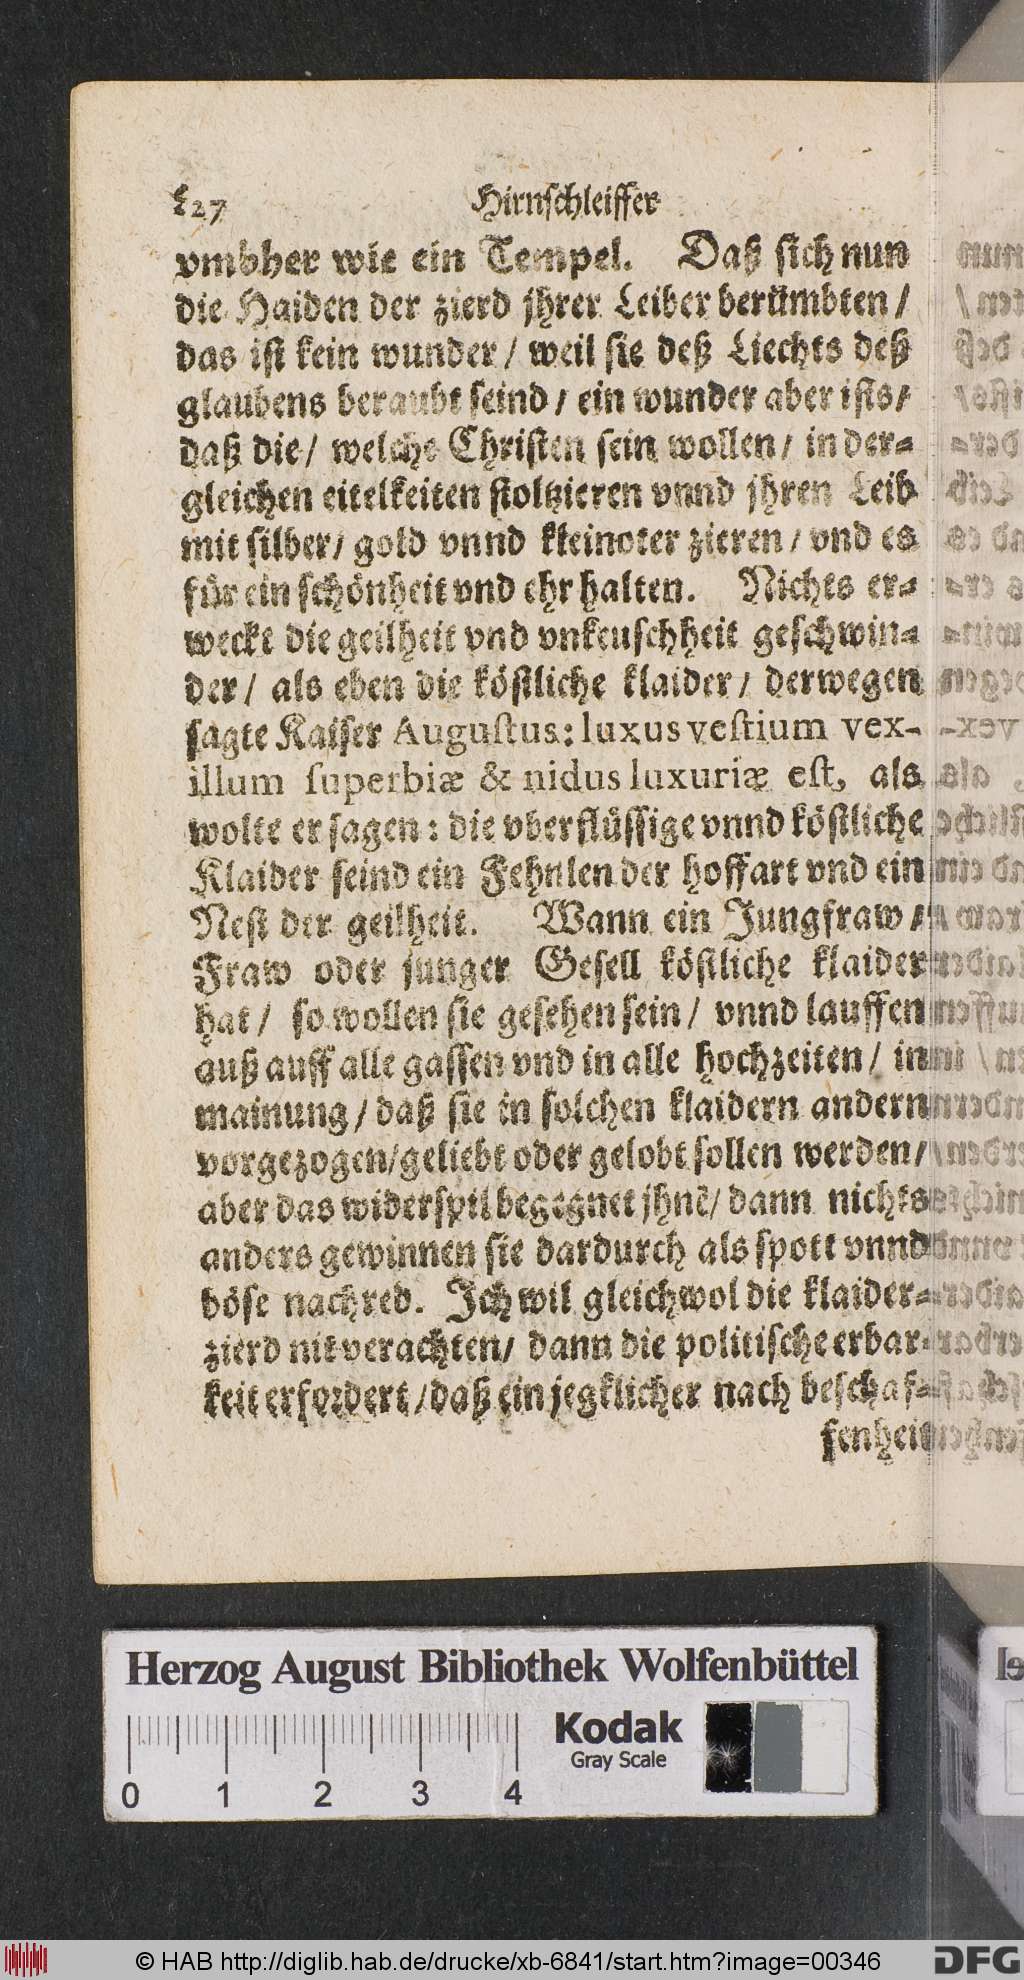 327 Hirnschleiffer
vmbher wie ein Tempel. Daß sich nun
die Haiden der zierd jhrer Leiber berümbten /
das ist kein wunder / weil sie deß Liechts deß
glaubens beraubt seind / ein wunder aber ists /
daß die / welche Christen sein wollen / in der⸗
gleichen eitelkeiten stoltzieren vnnd jhren Leib
mit silber / gold vnnd kleinoter zieren / vnd es
für ein schönheit vnd ehr halten. Nichts er⸗
weckt die geilheit vnd vnkeuschheit geschwin⸗
der / als eben die köstliche klaider / derwegen
sagte Kaiser Augustus: luxus vestium vex-
illum superbiæ & nidus luxuriæ est, als
wolte er sagen: die vberflüssige vnnd köstliche
Klaider seind ein Fehnlen der hoffart vnd ein
Nest der geilheit. Wann ein Jungfraw /
Fraw oder junger Gesell köstliche klaider
hat / so wollen sie gesehen sein / vnnd lauffen
auß auff alle gassen vnd in alle hochzeiten / in
mainung / daß sie in solchen klaidern andern
vorgezogen/geliebt oder gelobt sollen werden/
aber das widerspil begegnet jhnē/ dann nichts
anders gewinnen sie dardurch als spott vnnd
böse nachred. Ich wil gleichwol die klaider⸗
zierd nit verachten/ dann die politische erbar⸗
keit erfordert / daß ein jegklicher nach beschaf⸗
fenheit
Herzog August Bibliothek Wolfenbüttel
Kodak
Gray Scale
0 1 2 3 4
© HAB http://diglib.hab.de/drucke/xb-6841/start.htm?image=00346
DFG